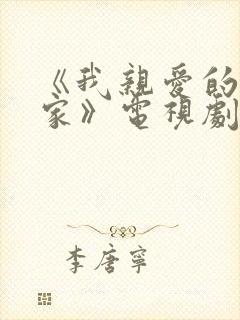 《我親愛的
家》電視劇
李唐寧